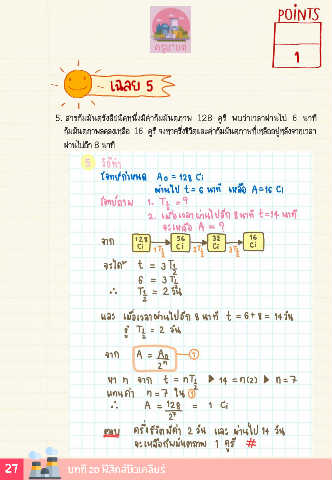 POINTS
1
ครูนายด์
เฉลย 5
5. สารกัมมันตรังสีชนิดหนึ่งมีค่ากัมมันตภาพ 128 คูรี พบว่าเวลาผ่านไป 6 นาที
กัมมันตภาพลดลงเหลือ 16 คูรี จงหาครึ่งชีวิตและค่ากัมมันตภาพที่เหลืออยู่หลังจากเวลา
ผ่านไปอีก 8 นาที
5 วิธีทำ
โจทย์กำหนด A₀ = 128 Ci
ผ่านไป t = 6 นาที เหลือ A = 16 Ci
โจทย์ถาม 1. T½ = ?
2. เมื่อเวลาผ่านไปอีก 8 นาที t = 14 นาที
จะเหลือ A = ?
จาก 128 Ci 1T½ 56 Ci 2T½ 32 Ci 3T½ 16 Ci
จะได้ t = 3T½
6 = 3T½
∴ T½ = 2 วัน
และ เมื่อเวลาผ่านไปอีก 8 นาที t = 6 + 8 = 14 วัน
รู้ T½ = 2 วัน
จาก A = A₀/2ⁿ ①
หา n จาก t = nT½ ▶ 14 = n(2) ▶ n = 7
แทนค่า n = 7 ใน ①
∴ A = 128/2⁷ = 1 Ci
ตอบ ครึ่งชีวิตมีค่า 2 วัน และ ผ่านไป 14 วัน
จะเหลือกัมมันตภาพ 1 คูรี #
27 บทที่ 20 ฟิสิกส์นิวเคลียร์